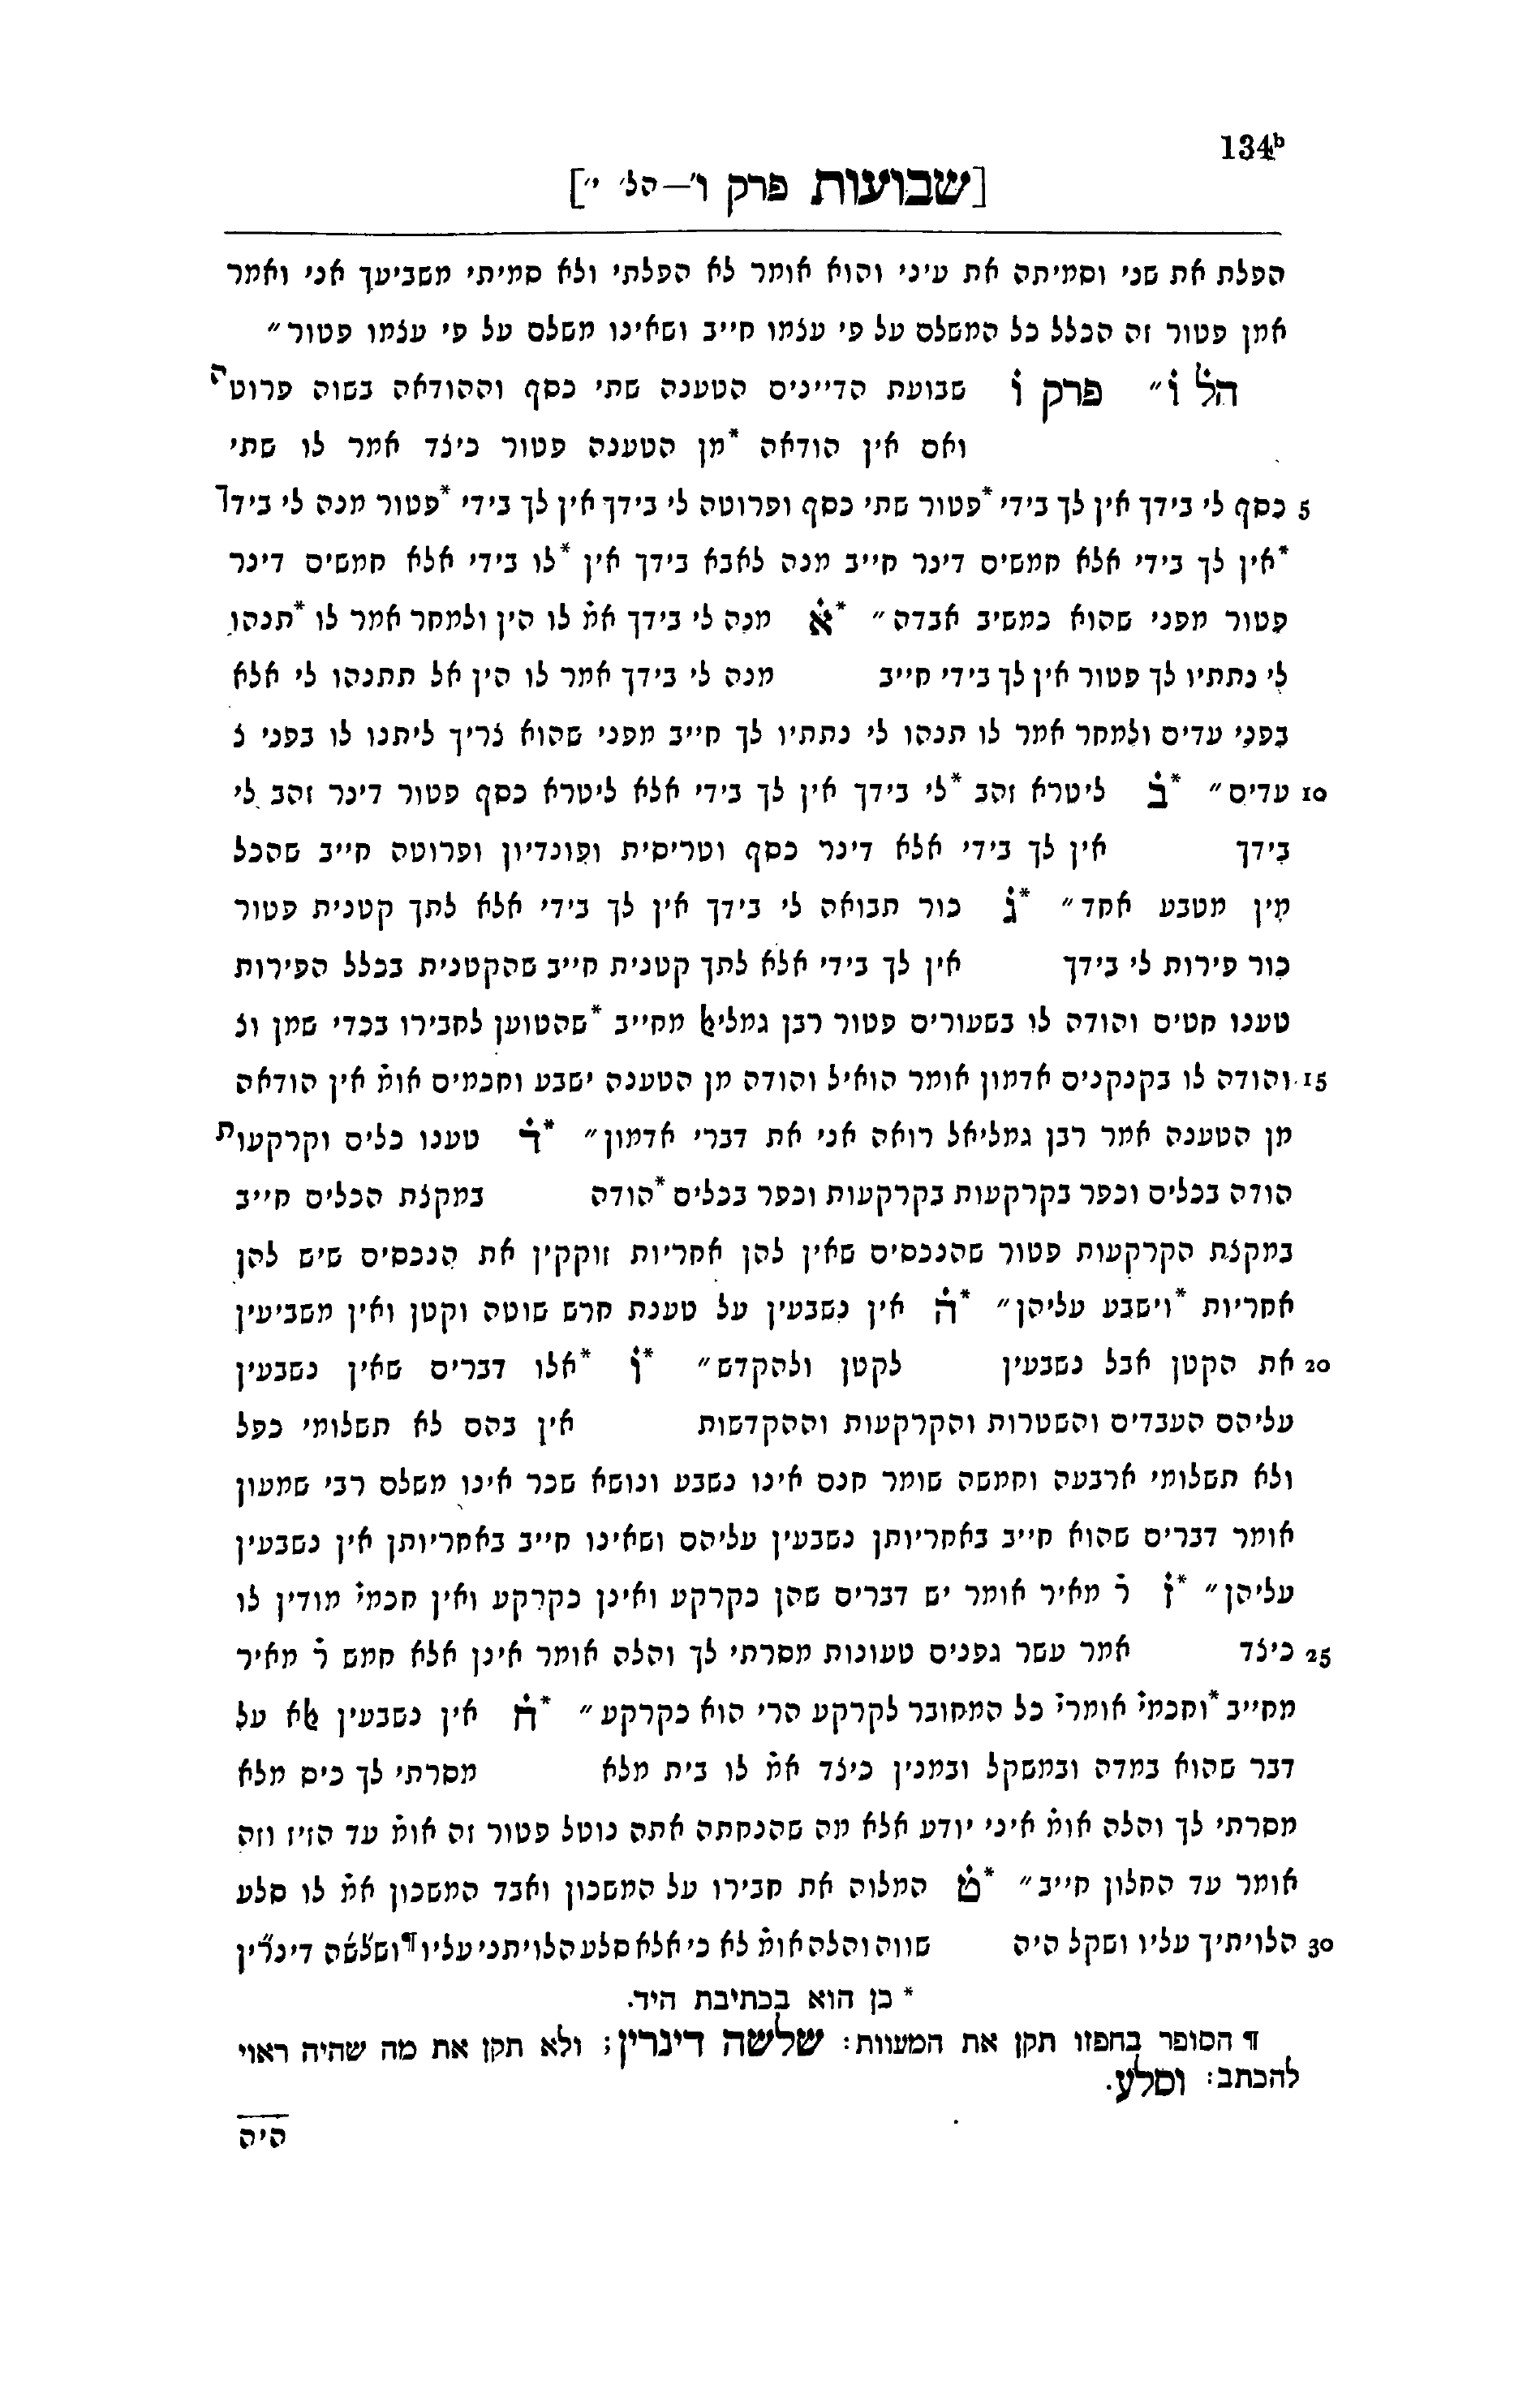 134ᵇ
[שבועות פרק ו׳—הל׳ י״]
הפלת את שני וסמיתה את עיני והוא אומר לא הפלתי ולא סמיתי משביעך אני ואמר
אמן פטור זה הכלל כל המשלם על פי עצמו חייב ושאינו משלם על פי עצמו פטור״
הל ו״ פרק ו שבועת הדיינים הטענה שתי כסף וההודאה בשוה פרוטה
ואם אין הודאה *מן הטענה פטור כיצד אמר לו שתי
5 כסף לי בידך אין לך בידי *פטור שתי כסף ופרוטה לי בידך אין לך בידי *פטור מנה לי בידך
*אין לך בידי אלא חמשים דינר חייב מנה לאבא בידך אין *לו בידי אלא חמשים דינר
פטור מפני שהוא כמשיב אבדה״ *א מנה לי בידך אמ̇ לו הין ולמחר אמר לו *תנהו
לי נתתיו לך פטור אין לך בידי חייב מנה לי בידך אמר לו הין אל תתנהו לי אלא
בפני עדים ולמחר אמר לו תנהו לי נתתיו לך חייב מפני שהוא צריך ליתנו לו בפני צ
10 עדים״ *ב ליטרא זהב *לי בידך אין לך בידי אלא ליטרא כסף פטור דינר זהב לי
בידך אין לך בידי אלא דינר כסף וטריסית ופונדיון ופרוטה חייב שהכל
מין מטבע אחד״ *ג כור תבואה לי בידך אין לך בידי אלא לתך קטנית פטור
כור פירות לי בידך אין לך בידי אלא לתך קטנית חייב שהקטנית בכלל הפירות
טענו חטים והודה לו בשעורים פטור רבן גמליﭏ מחייב *שהטוען לחבירו בכדי שמן וצ
15 והודה לו בקנקנים אדמון אומר הואיל והודה מן הטענה ישבע וחכמים אומ̇ אין הודאה
מן הטענה אמר רבן גמליאל רואה אני את דברי אדמון״ *ד טענו כלים וקרקעות
הודה בכלים וכפר בקרקעות בקרקעות וכפר בכלים *הודה במקצת הכלים חייב
במקצת הקרקעות פטור שהנכסים שאין להן אחריות זוקקין את הנכסים שיש להן
אחריות *וישבע עליהן״ *ה אין נשבעין על טענת חרש שוטה וקטן ואין משביעין
20 את הקטן אבל נשבעין לקטן ולהקדש״ *ו *אלו דברים שאין נשבעין
עליהם העבדים והשטרות והקרקעות וההקדשות אין בהם לא תשלומי כפל
ולא תשלומי ארבעה וחמשה שומר חנם אינו נשבע ונושא שכר אינו משלם רבי שמעון
אומר דברים שהוא חייב באחריותן נשבעין עליהם ושאינו חייב באחריותן אין נשבעין
עליהן״ *ז ר̇ מאיר אומר יש דברים שהן כקרקע ואינן כקרקע ואין חכמי̇ מודין לו
25 כיצד אמר עשר גפנים טעונות מסרתי לך והלה אומר אינן אלא חמש ר̇ מאיר
מחייב *וחכמי̇ אומרי̇ כל המחובר לקרקע הרי הוא כקרקע״ *ח אין נשבעין ﭏא על
דבר שהוא במדה ובמשקל ובמנין כיצד אמ̇ לו בית מלא מסרתי לך כיס מלא
מסרתי לך והלה אומ̇ איני יודע אלא מה שהנחתה אתה נוטל פטור זה אומ̇ עד הזיז וזה
אומר עד החלון חייב״ *ט המלוה את חבירו על המשכון ואבד המשכון אמ̇ לו סלע
30 הלויתיך עליו ושקל היה שווה והלה אומ̇ לא כי אלא סלע הלויתני עליו¶ ושלשה דינרין
* כן הוא בכתיבת היד.
¶ הסופר בחפזו תקן את המעוות: שלשה דינרין; ולא תקן את מה שהיה ראוי
להכתב: וסלע.
היה